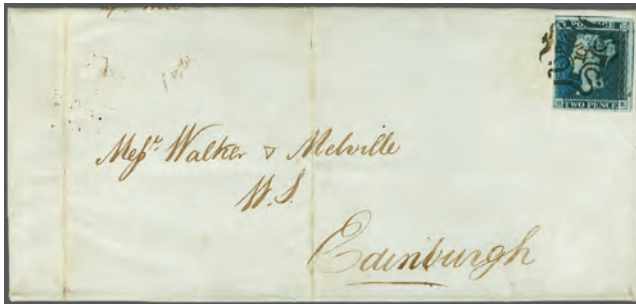 POSTAGE
TWO PENCE
Messrs. Walker & Melville
W.S.
Edinburgh